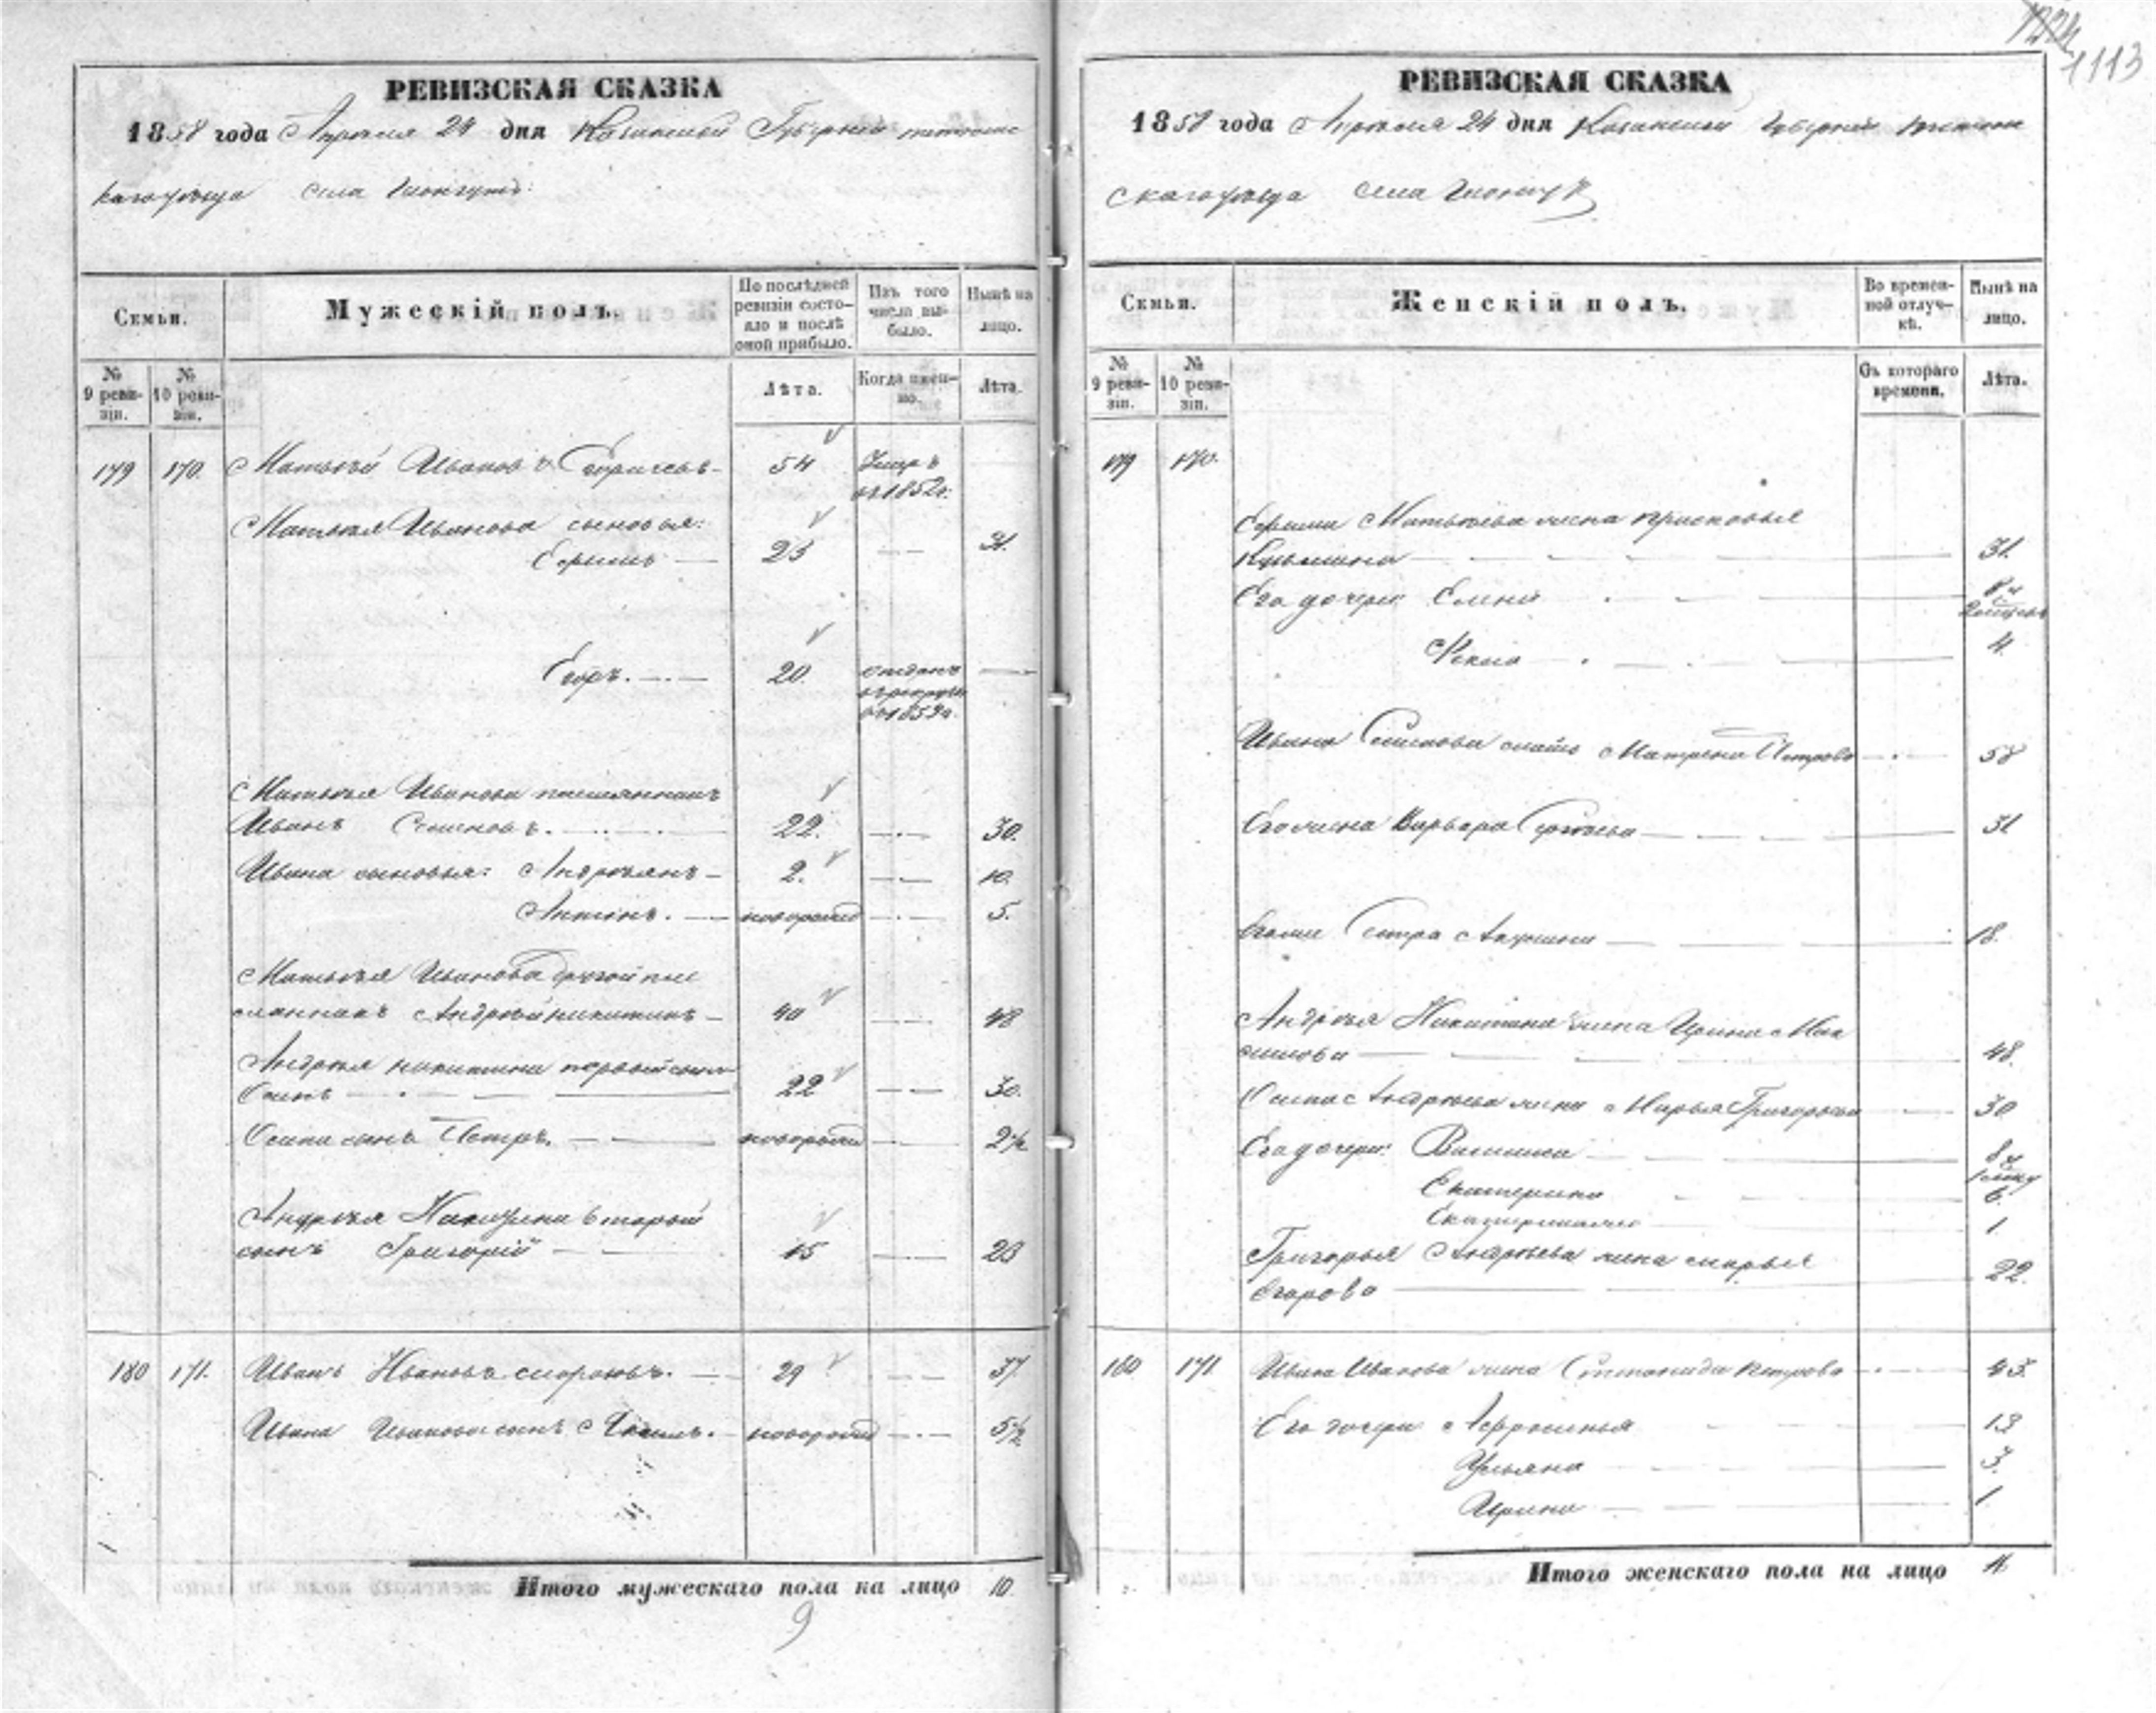 1113
РЕВИЗСКАЯ СКАЗКА
1858 года Апреля 24 дня Казанской Губернии
уезда села
Семьи.
Мужескій полъ.
По послѣдней ревизіи состояло и послѣ оной прибыло.
Изъ того числа выбыло.
Нынѣ на лицо.
№ 9 ревизіи.
№ 10 ревизіи.
Лѣта.
Когда именно.
Лѣта.
179 170. Матвей Ивановъ 54 Умеръ
въ 1852г.
Матвея Иванова сыновья:
Ефимъ 23 31.
Егоръ. 20. отданъ
въ рекруты
Матвея Иванова племянникъ
Иванъ Семеновъ. 22. 30.
Ивана сыновья: Андреянъ 2. 10.
Антонъ. новорожд 5.
Матвея Иванова другой пле
мянникъ Андрей Никитинъ 40 48
Андрея Никитина первый сынъ
Осипъ 22 30.
Осипа сынъ Петръ. новорожд 2½
Андрея Никитина второй
сынъ Григорій 15 23
180 171. Иванъ Ивановъ 29 37
Ивана Иванова сынъ новорожд 5½
Итого мужескаго пола на лицо 10.
9
РЕВИЗСКАЯ СКАЗКА
1858 года Апреля 24 дня Казанской Губернии
скаго уезда села
Семьи.
Женскій полъ.
Во временной отлучкѣ.
Нынѣ на лицо.
№ 9 ревизіи.
№ 10 ревизіи.
Съ котораго времени.
Лѣта.
179 170.
Ефима Матвеева жена Прасковья
Кузьмина 31.
Его дочери: Елена
Фекла 4.
Ивана Семенова мать Матрена Петрова 58
Его жена Варвара Сергеева 31
Его же сестра Акулина 18.
Андрея Никитина жена Ирина Мак
симова 48.
Осипа Андреева жена Марья Григорьева 30
Его дочери: Василиса
Екатерина 6.
1.
Григорья Андреева жена Марья
Егорова 22.
180 171 Ивана Иванова жена Степанида Петрова 43.
Его дочери Афросинья 13
Ульяна 3.
Ирина 1
Итого женскаго пола на лицо